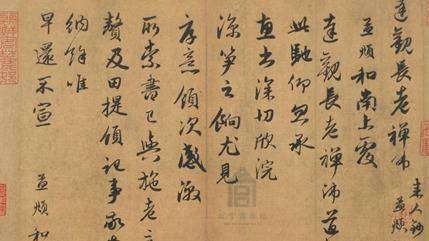 達觀長老禪師
孟頫
孟頫和南上覆
達觀長老禪師道
此馳仰忽承
惠書深切欣浣
涼笋之餉尤見
厚意領次感激
所索書已與施老
及田提領記事
納餘唯
早還不宣
孟頫和